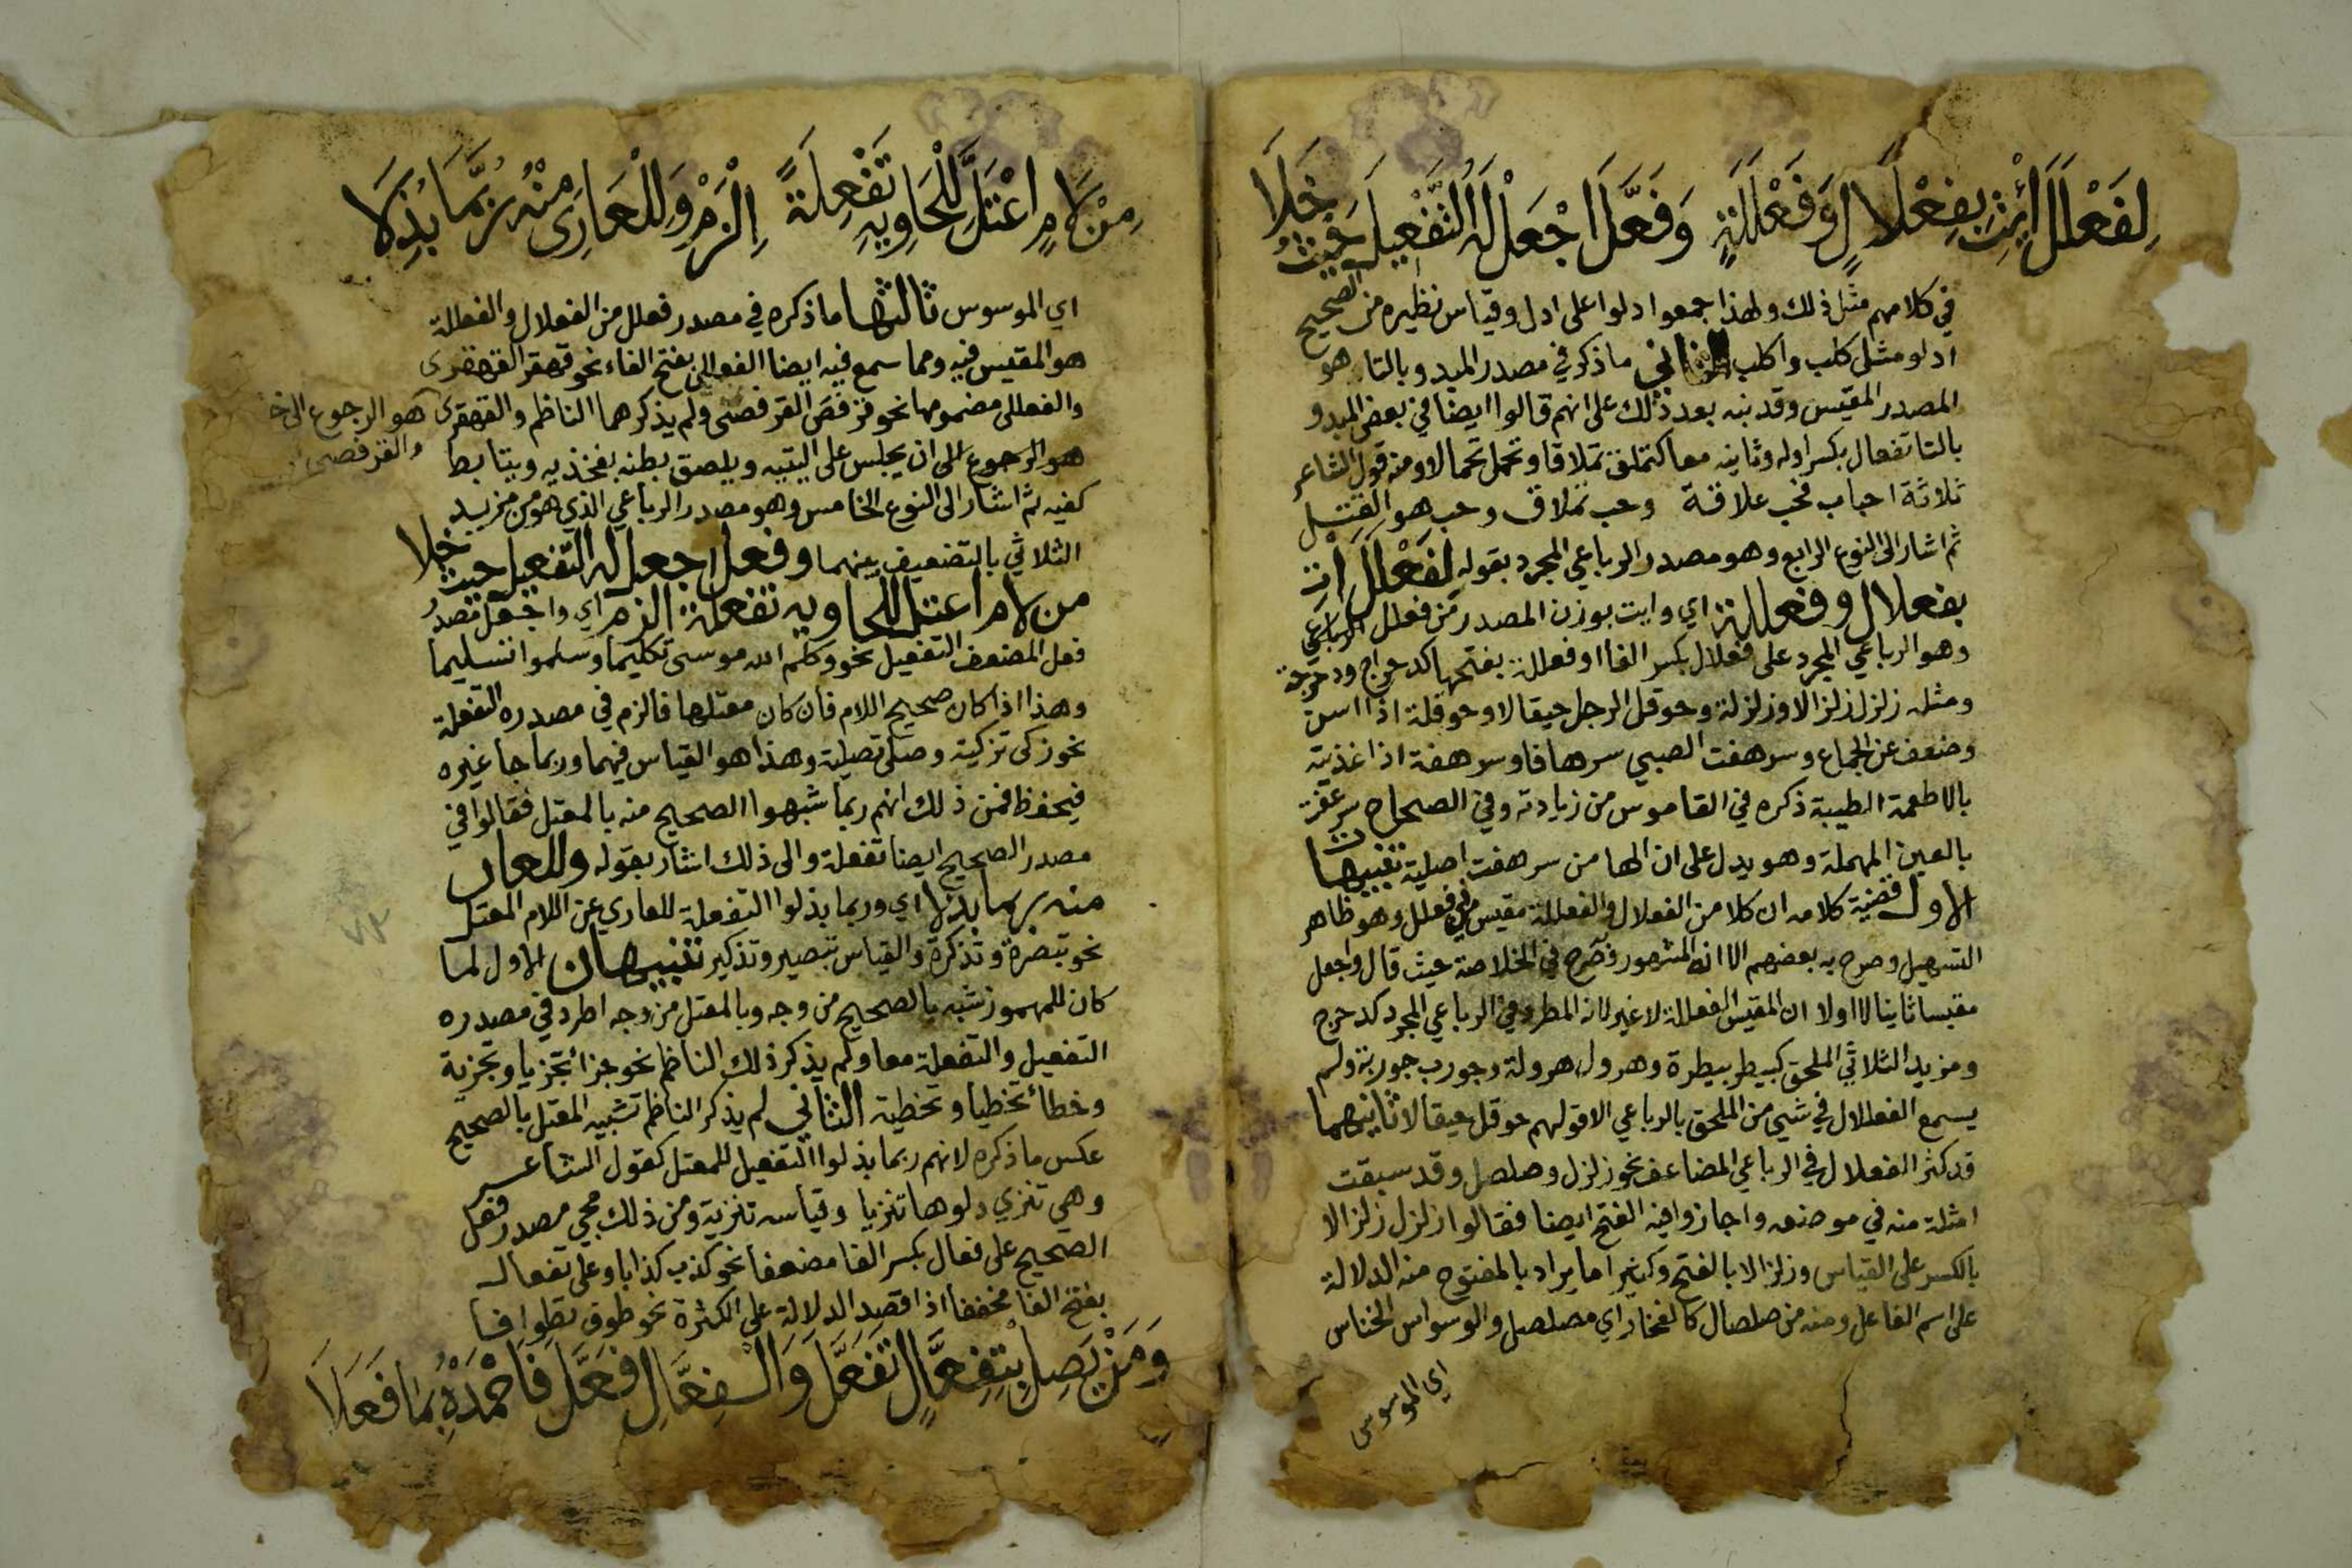 لِفَعْلَلَ ائْتِ بِفِعْلَالٍ وَفَعْلَلَةٍ وَفَعَّلَ اجْعَلْ لَهُ التَّفْعِيلَ حَيْثُ خَلَا
في كلامهم مثل ذلك ولهذا جمعوا دلوا على ادل وقياس نظيره من الصحيح
ادلو مثل كلب واكلب الثاني ما ذكر في مصدر المبدو بالتا هو
المصدر المقيس وقد نبه بعد ذلك على انهم قالوا ايضا في بعض المبدو
بالتا تفعال بكسر اوله وثانيه معا كتملق تملاقا وتحمل تحمالا ومنه قول الشاعر
ثلاثة احباب فحب علاقة وحب تملاق وحب هو القتل
ثم اشار الى النوع الرابع وهو مصدر الرباعي المجرد بقوله لفَعْلَلَ ائت
بفعلال وفعللة اي وايت بوزن المصدر من فعلل الرباعي
وهو الرباعي المجرد على فعلال بكسر الفا او فعللة بفتحها كدحراج ودحرجة
ومثله زلزل زلزالا وزلزلة وحوقل الرجل حيقالا وحوقلة اذا اسن
وضعف عن الجماع وسرهفت الصبي سرهافا وسرهفة اذا غذيته
بالاطعمة الطيبة ذكره في القاموس من زيادته وفي الصحاح سرعفته
بالعين المهملة وهو يدل على ان الها من سرهفت اصلية تنبيهات
الاول قضية كلامه ان كلا من الفعلال والفعللة مقيس في فعلل وهو ظاهر
التسهيل وصرح به بعضهم الا ان المشهور وصرح في الخلاصة حيث قال واجعل
مقيسا ثانيا لا اولا ان المقيس الفعللة لا غير لانه المطرد في الرباعي المجرد كدحرج
ومزيد الثلاثي الملحق كبيطر بيطرة وهرول هرولة وجورب جوربة ولم
يسمع الفعلال في شيء من الملحق بالرباعي الا قولهم حوقل حيقالا ثانيهما
قد كثر الفعلال في الرباعي المضاعف نحو زلزل وصلصل وقد سبقت
امثلة منه في موضعه واجازوا فيه الفتح ايضا فقالوا زلزل زلزالا
بالكسر على القياس وزلزالا بالفتح وكثيرا ما يراد بالمفتوح منه الدلالة
على اسم الفاعل ومنه من صلصال كالفخار اي مصلصل والوسواس الخناس
اي الموسوس
مِنْ لَامٍ اعْتَلَّ لِلْحَاوِيهِ تَفْعِلَةً الْزَمْ وَلِلْعَارِي مِنْهُ رُبَّمَا بُذِلَا
اي الموسوس ثالثها ما ذكره في مصدر فعلل من الفعلال والفعللة
هو المقيس فيه ومما سمع فيه ايضا الفعللى بفتح الفاء نحو قهقر القهقرى
والفعللى مضمومها نحو قرفص القرفصى ولم يذكرهما الناظم والقهقرى هو الرجوع الى
والقرفصى
هو الرجوع الى ان يجلس على اليتيه ويلصق بطنه بفخذيه ويتابط
كفيه ثم اشار الى النوع الخامس وهو مصدر الرباعي الذي هو من مزيد
الثلاثي بالتضعيف بينهما وفعل اجعل له التفعيل حيث خلا
من لام اعتل للحاويه تفعلة الزم اي واجعل مصدر
فعل المضعف التفعيل نحو وكلم الله موسى تكليما وسلموا تسليما
وهذا اذا كان صحيح اللام فان كان معتلها فالزم في مصدره التفعلة
نحو زكى تزكية وصلى تصلية وهذا هو القياس فيهما وربما جا غيره
فيحفظ فمن ذلك انهم ربما شبهوا الصحيح منه بالمعتل فقالوا في
مصدر الصحيح ايضا تفعلة والى ذلك اشار بقوله وللعار
منه ربما بذلا اي وربما بذلوا التفعلة للعاري عن اللام المعتل
نحو تبصرة وتذكرة والقياس تبصير وتذكير تنبيهان الاول لما
كان للمهموز شبه بالصحيح من وجه وبالمعتل من وجه اطرد في مصدره
التفعيل والتفعلة معا ولم يذكر ذلك الناظم نحو جزأ تجزيا وتجزية
وخطأ تخطيا وتخطية الثاني لم يذكر الناظم تشبيه المعتل بالصحيح
عكس ما ذكره لانهم ربما بذلوا التفعيل للمعتل كقول الشاعر
وهي تنزي دلوها تنزيا وقياسه تنزية ومن ذلك مجي مصدر فعل
الصحيح على فعال بكسر الفا مضعفا نحو كذب كذابا وعلى تفعال
بفتح الفا مخففا اذا قصد الدلالة على الكثرة نحو طوف تطوافا
وَمَنْ يَصِلْ بِتِفِعَّالٍ تَفَعَّلَ وَالْفِعَّالِ فَعَّلَ فَاحْمَدْهُ بِمَا فَعَلَا
٧٢